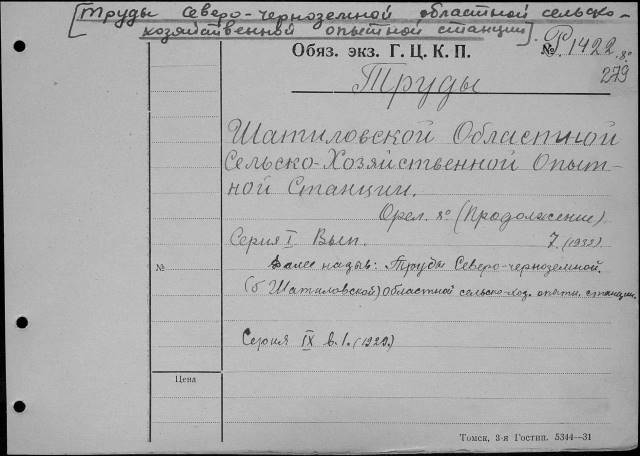 [Труды Северо-черноземной областной сельско-
хозяйственной опытной станции].
Обяз. экз. Г. Ц. К. П. № Р 1422 8°
279
Труды
Шатиловской Областной
Сельско-Хозяйственной Опыт-
ной Станции.
Орел. 8° (Продолжение)
Серия I Вып. 7.
Далее надыв: Труды Северо-черноземной.
(б Шатиловской) областной сельско-хоз. опытн. станции.
№
Серия IX в. 1. (1929)
Цена
Томск, 3-я Гостип. 5344—31